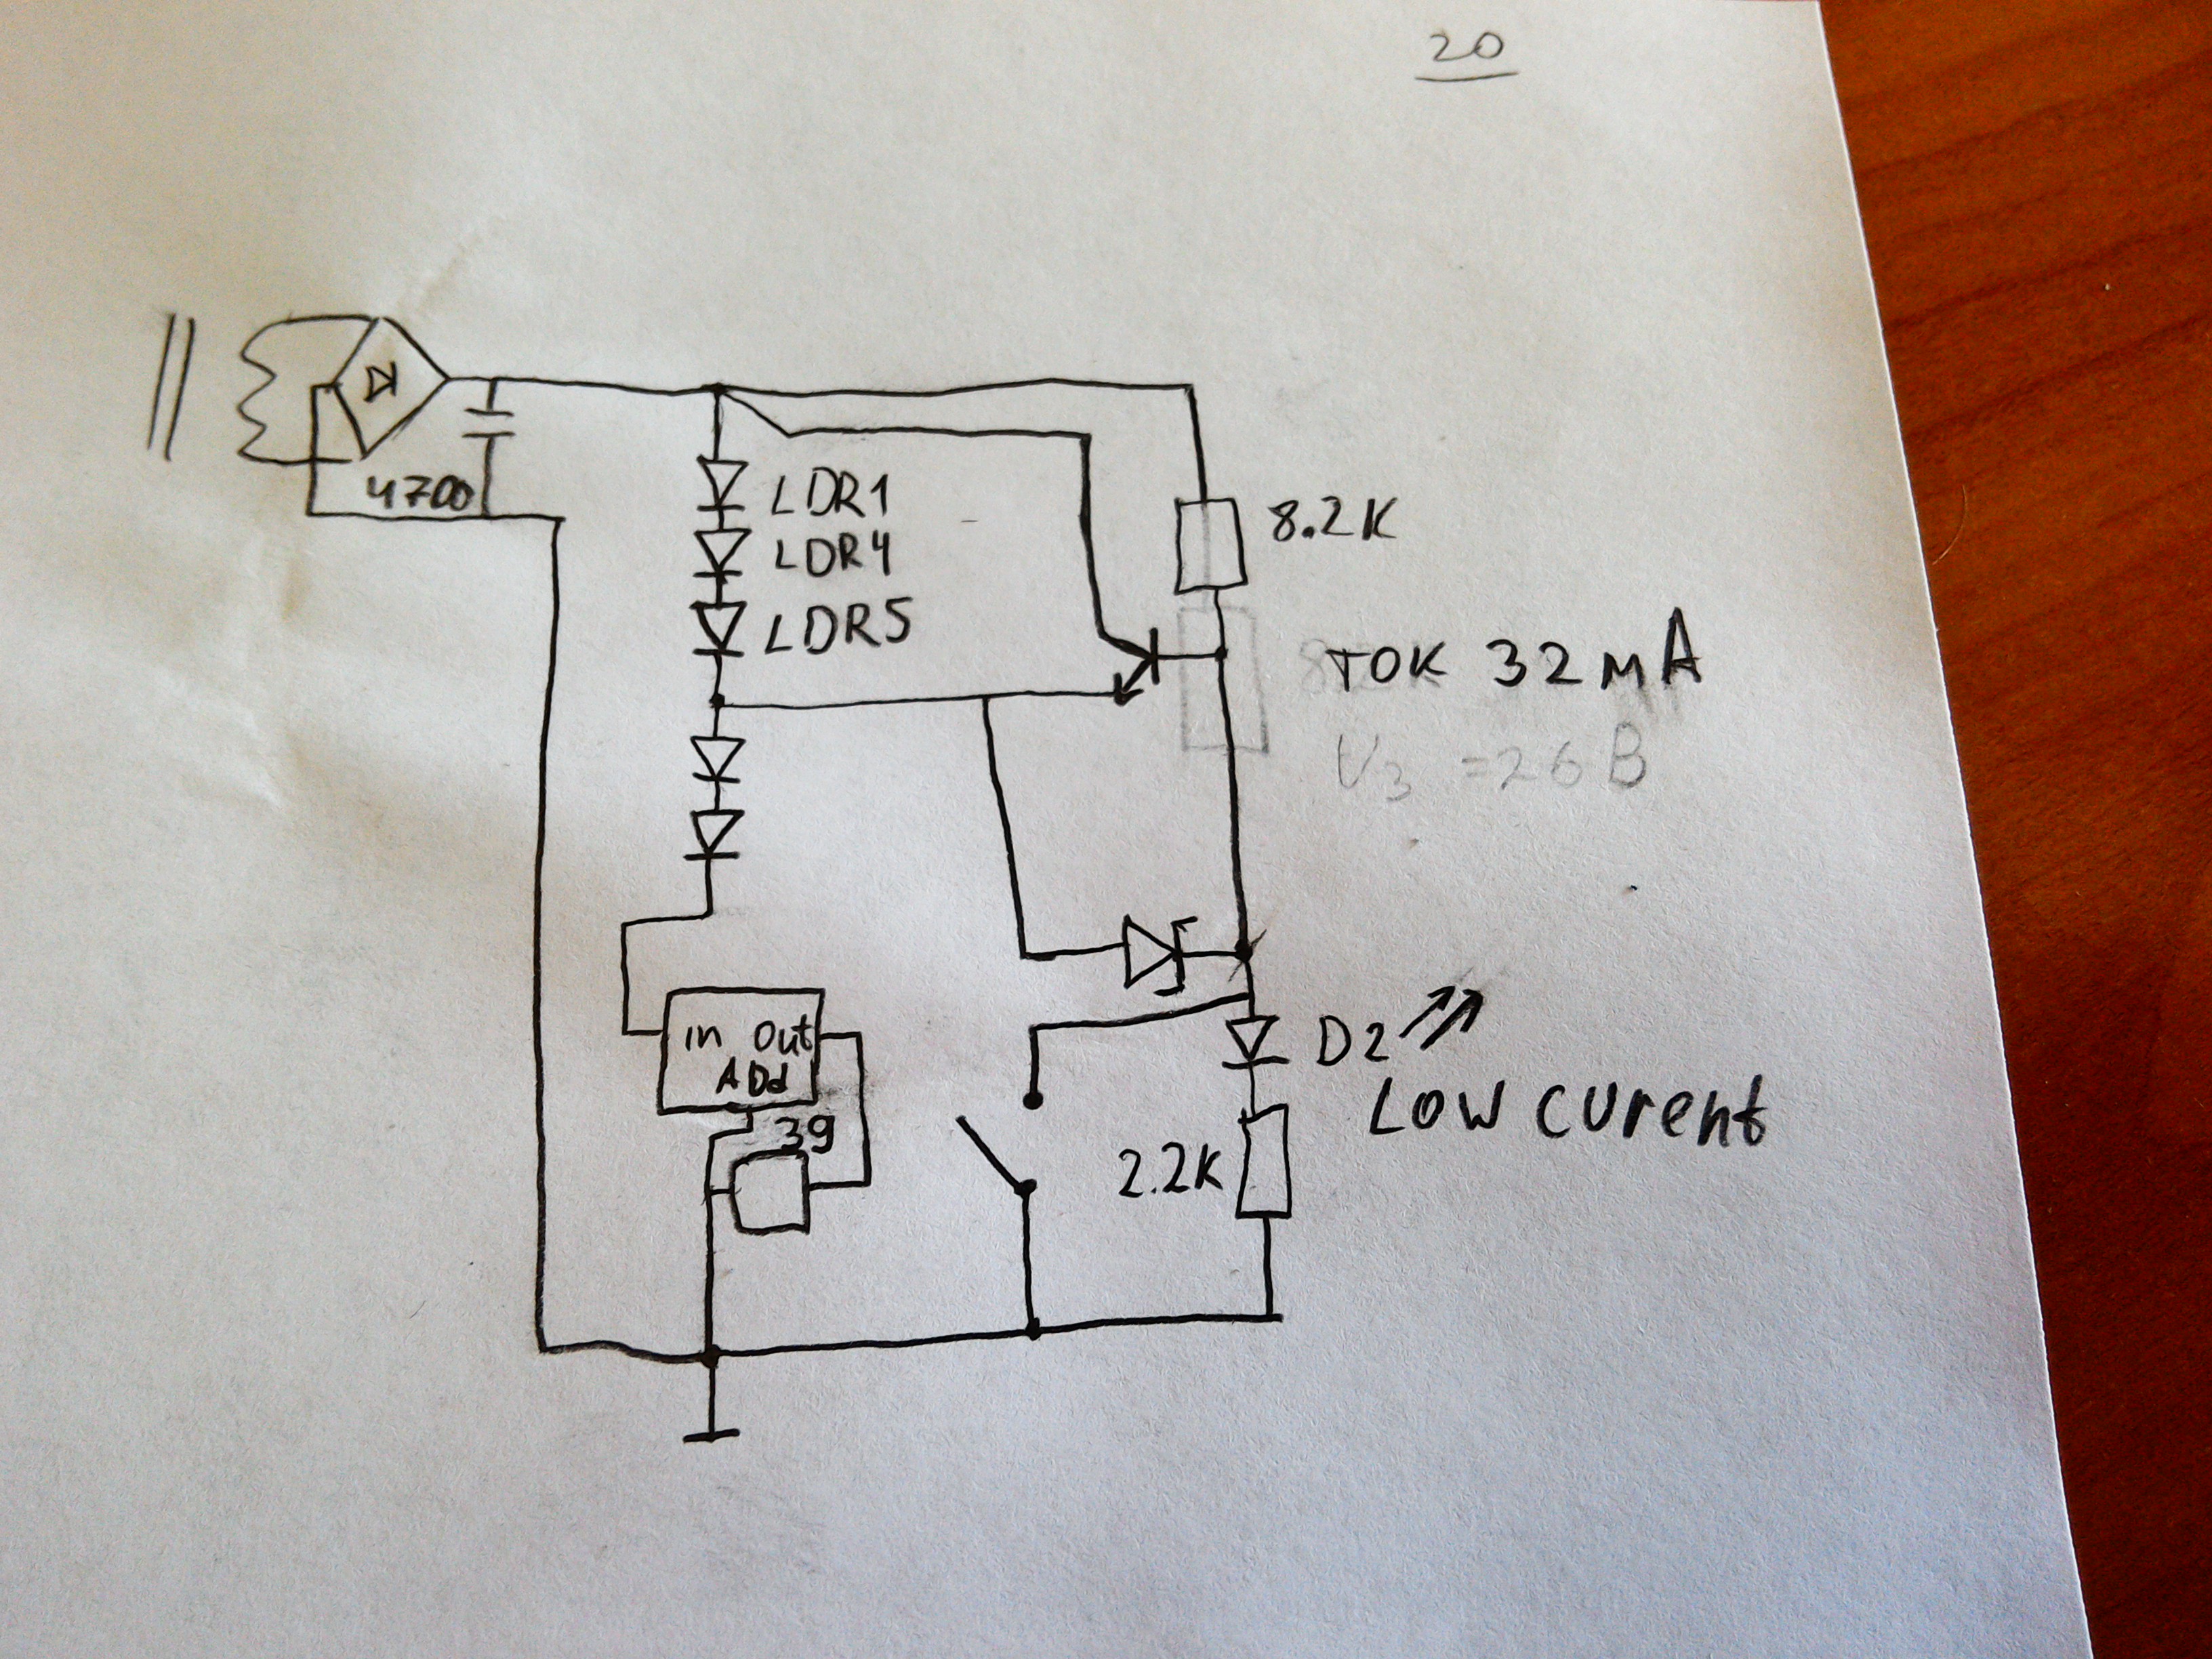 20
4700
LDR1
LDR4
LDR5
8.2K
ТОК 32 мА
U3 =26 В
in Out
ADd
39
D2
LOW CURENT
2.2K